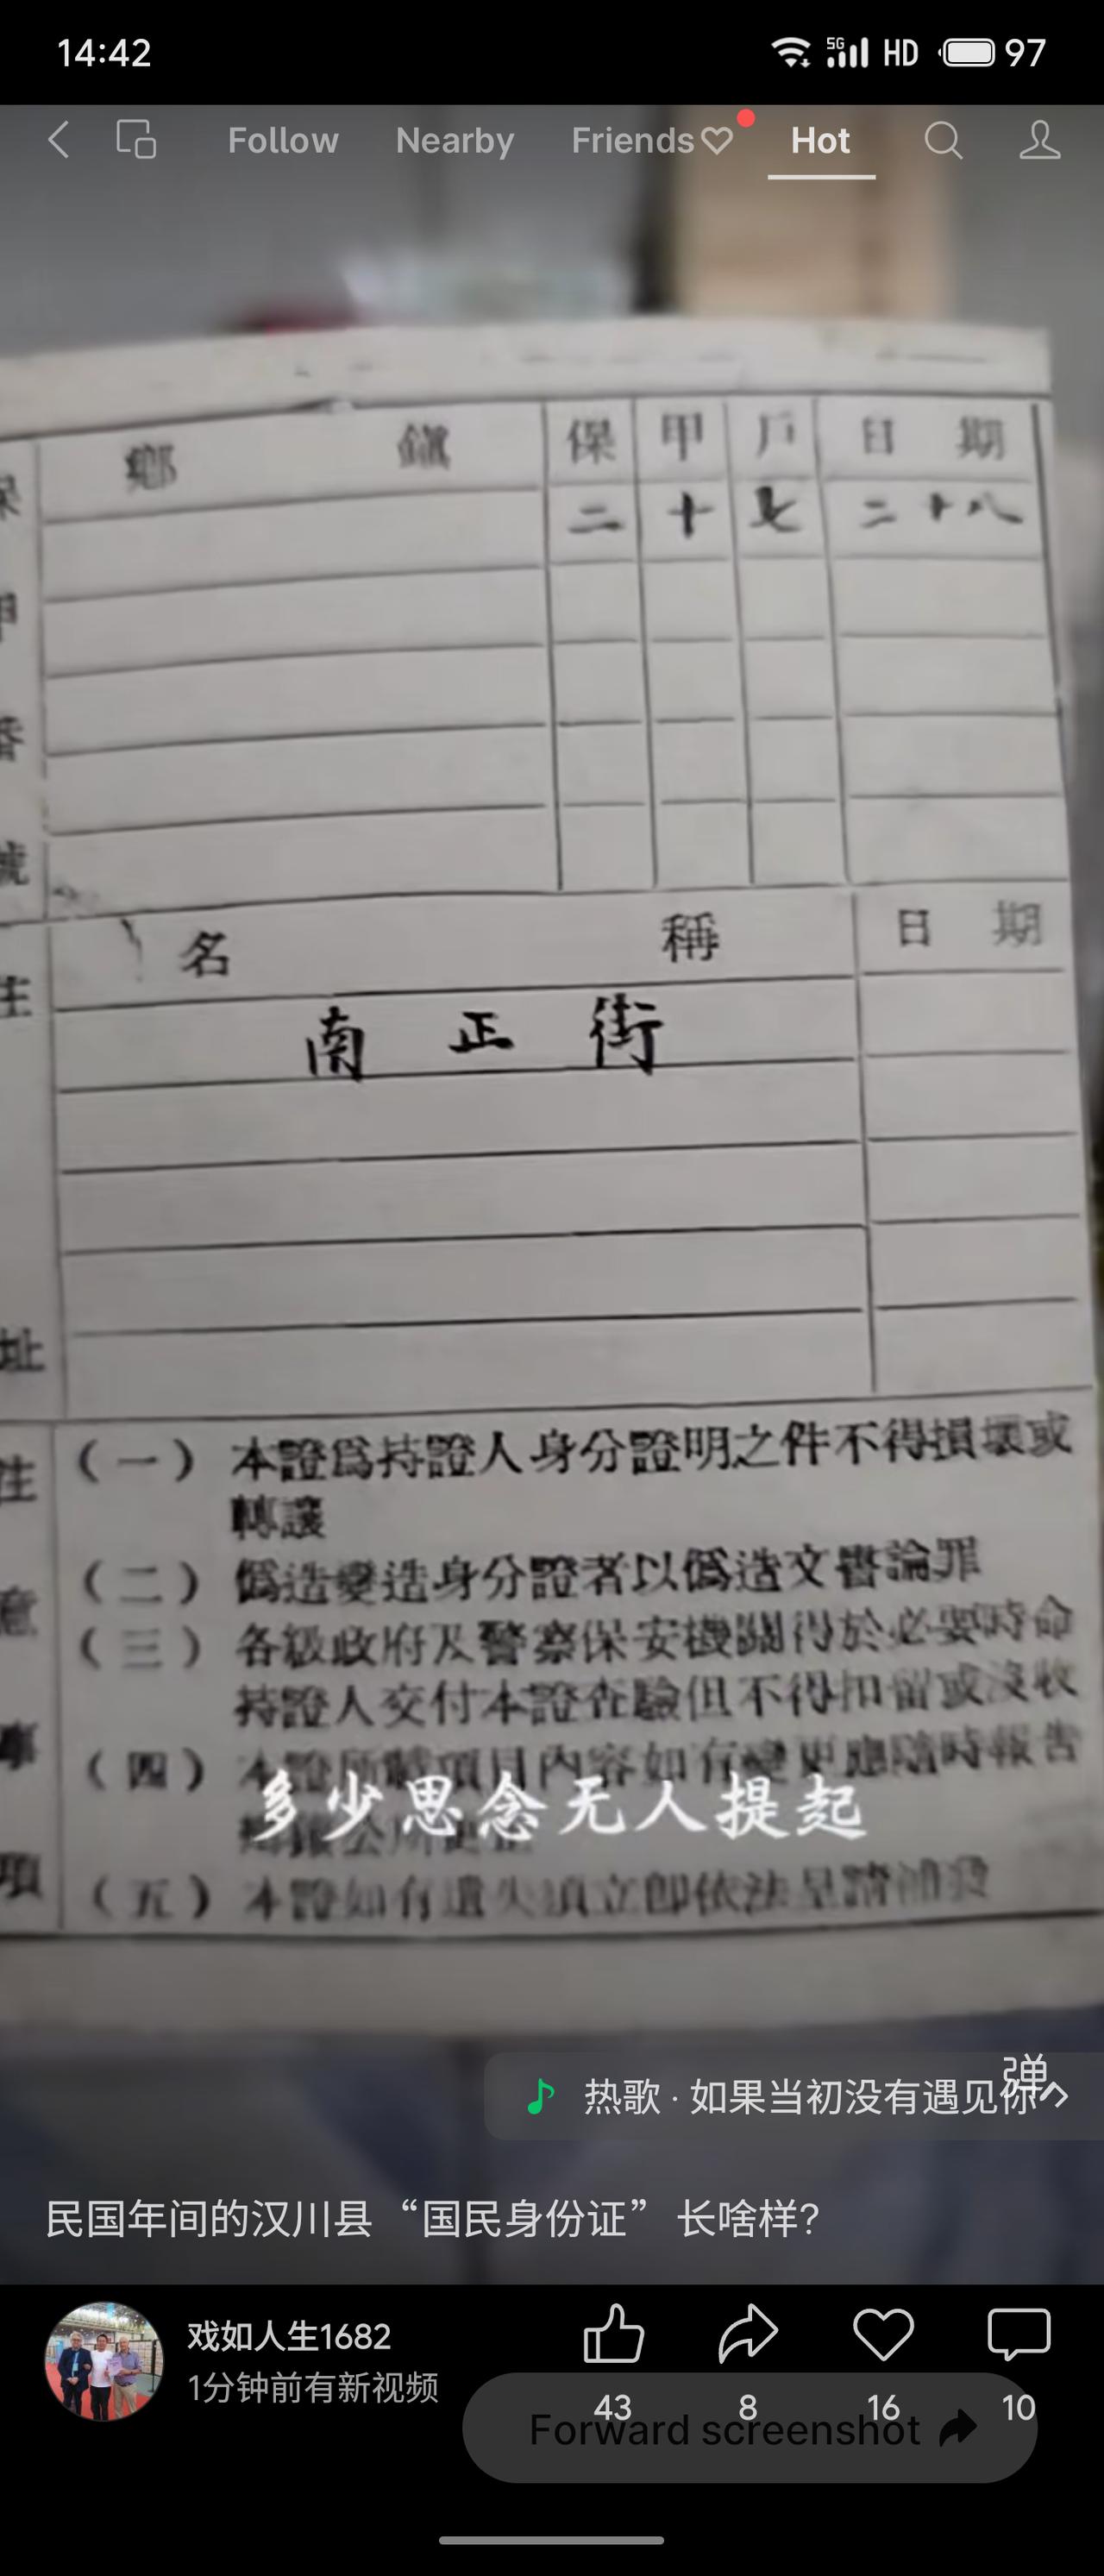 14:42
5G HD 97
Follow Nearby Friends Hot
鄉 鎮 保 甲 戶 日 期
二 十 七 二十八
甲
番
號
名 稱 日 期
住
南正街
址
(一) 本證爲持證人身分證明之件不得損壞或
轉讓
(二) 僞造變造身分證者以僞造文書論罪
(三) 各級政府及警察保安機關得於必要時命
持證人交付本證查驗但不得扣留或沒收
意
事
(四) 本證所載項目內容如有變更應隨時報告
多少思念无人提起
項
(五) 本證如有遺失須立卽依法呈請補發
弹
热歌 · 如果当初没有遇见你
民国年间的汉川县“国民身份证”长啥样?
戏如人生1682
1分钟前有新视频
43 8 16 10
Forward screenshot